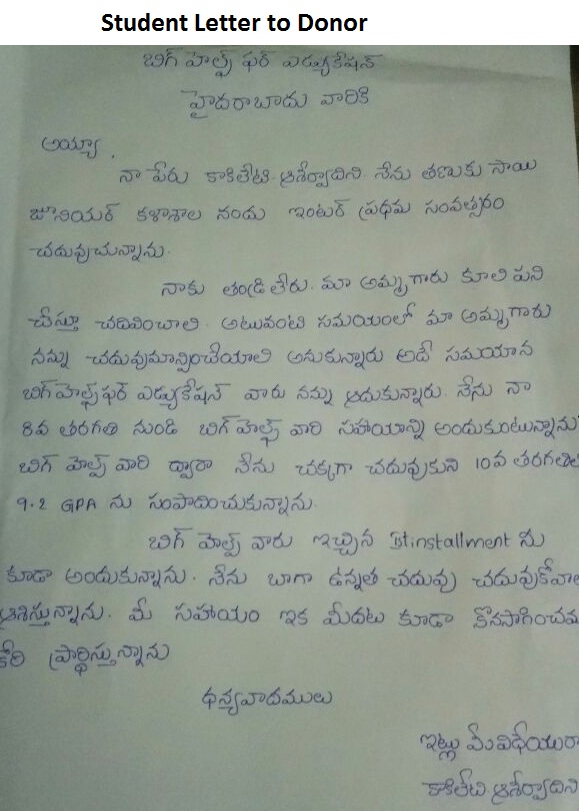 Student Letter to Donor
బిగ్ హెల్ప్ ఫర్ ఎడ్యుకేషన్
హైదరాబాదు వారికి
అయ్యా,
నా పేరు కాకిలేటి. ఆశీర్వాదిని. నేను తణుకు సాయి
జూనియర్ కళాశాల నందు ఇంటర్ ప్రథమ సంవత్సరం
చదువుచున్నాను.
నాకు తండ్రి లేరు. మా అమ్మగారు కూలి పని
చేస్తూ చదివించాలి. అటువంటి సమయంలో మా అమ్మగారు
నన్ను చదువుమాన్పించేయాలి అనుకున్నారు అదే సమయాన
బిగ్ హెల్ప్ ఫర్ ఎడ్యుకేషన్ వారు నన్ను ఆదుకున్నారు. నేను నా
8వ తరగతి నుండి బిగ్ హెల్ప్ వారి సహాయాన్ని అందుకుంటున్నాను
బిగ్ హెల్ప్ వారి ద్వారా నేను చక్కగా చదువుకుని 10వ తరగతిలో
9.2 GPA ను సంపాదించుకున్నాను.
బిగ్ హెల్ప్ వారు ఇచ్చిన Ist installment ను
కూడా అందుకున్నాను. నేను బాగా ఉన్నత చదువు
ఆశిస్తున్నాను. మీ సహాయం ఇక మీదటు కూడా
ప్రార్థిస్తున్నాను
ధన్యవాదములు
ఇట్లు మీ
కాకిలేటి. ఆశీర్వాదిని